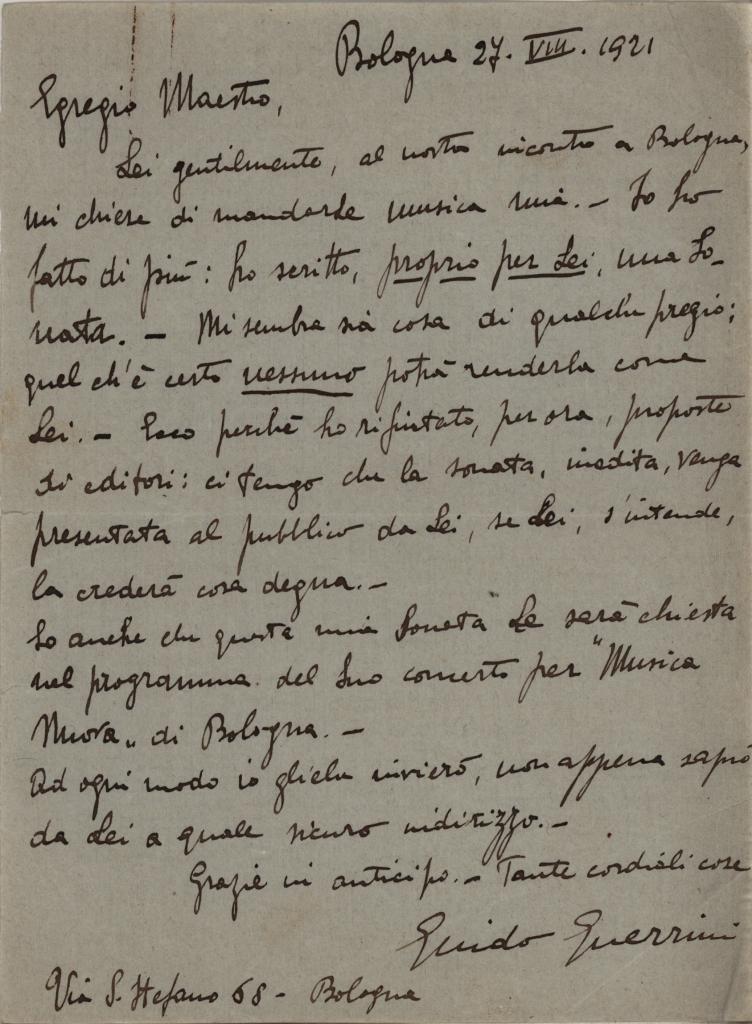 Bologna 27. VIII. 1921
Egregio Maestro,
Lei gentilmente, al nostro incontro a Bologna,
mi chiese di mandarLe musica mia. – Io ho
fatto di più: ho scritto, proprio per Lei, una So-
nata. – Mi sembra sia cosa di qualche pregio;
quel ch'è certo nessuno potrà renderla come
Lei. – Ecco perchè ho rifiutato, per ora, proposte
di editori: ci tengo che la sonata, inedita, venga
presentata al pubblico da Lei, se Lei, s'intende,
la crederà cosa degna. –
So anche che questa mia Sonata Le sarà chiesta
nel programma del Suo concerto per "Musica
Nuova„ di Bologna. –
Ad ogni modo io gliela invierò, non appena saprò
da Lei a quale sicuro indirizzo. –
Grazie in anticipo. – Tante cordiali cose
Guido Guerrini
Via S. Stefano 68 – Bologna